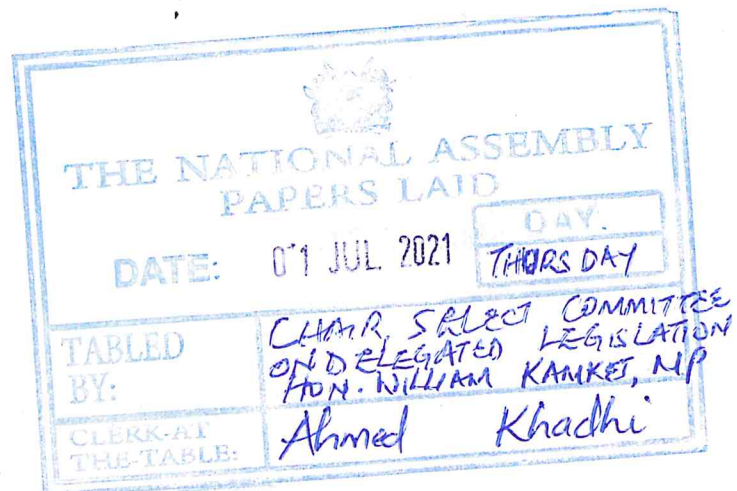 THE NATIONAL ASSEMBLY
PAPERS LAID
DATE: 01 JUL 2021
DAY.
THURSDAY
TABLED BY:
CHAIR, SELECT COMMITTEE
ON DELEGATED LEGISLATION
HON. WILLIAM KAMKET, MP
CLERK-AT
THE-TABLE:
Ahmed Khadhi